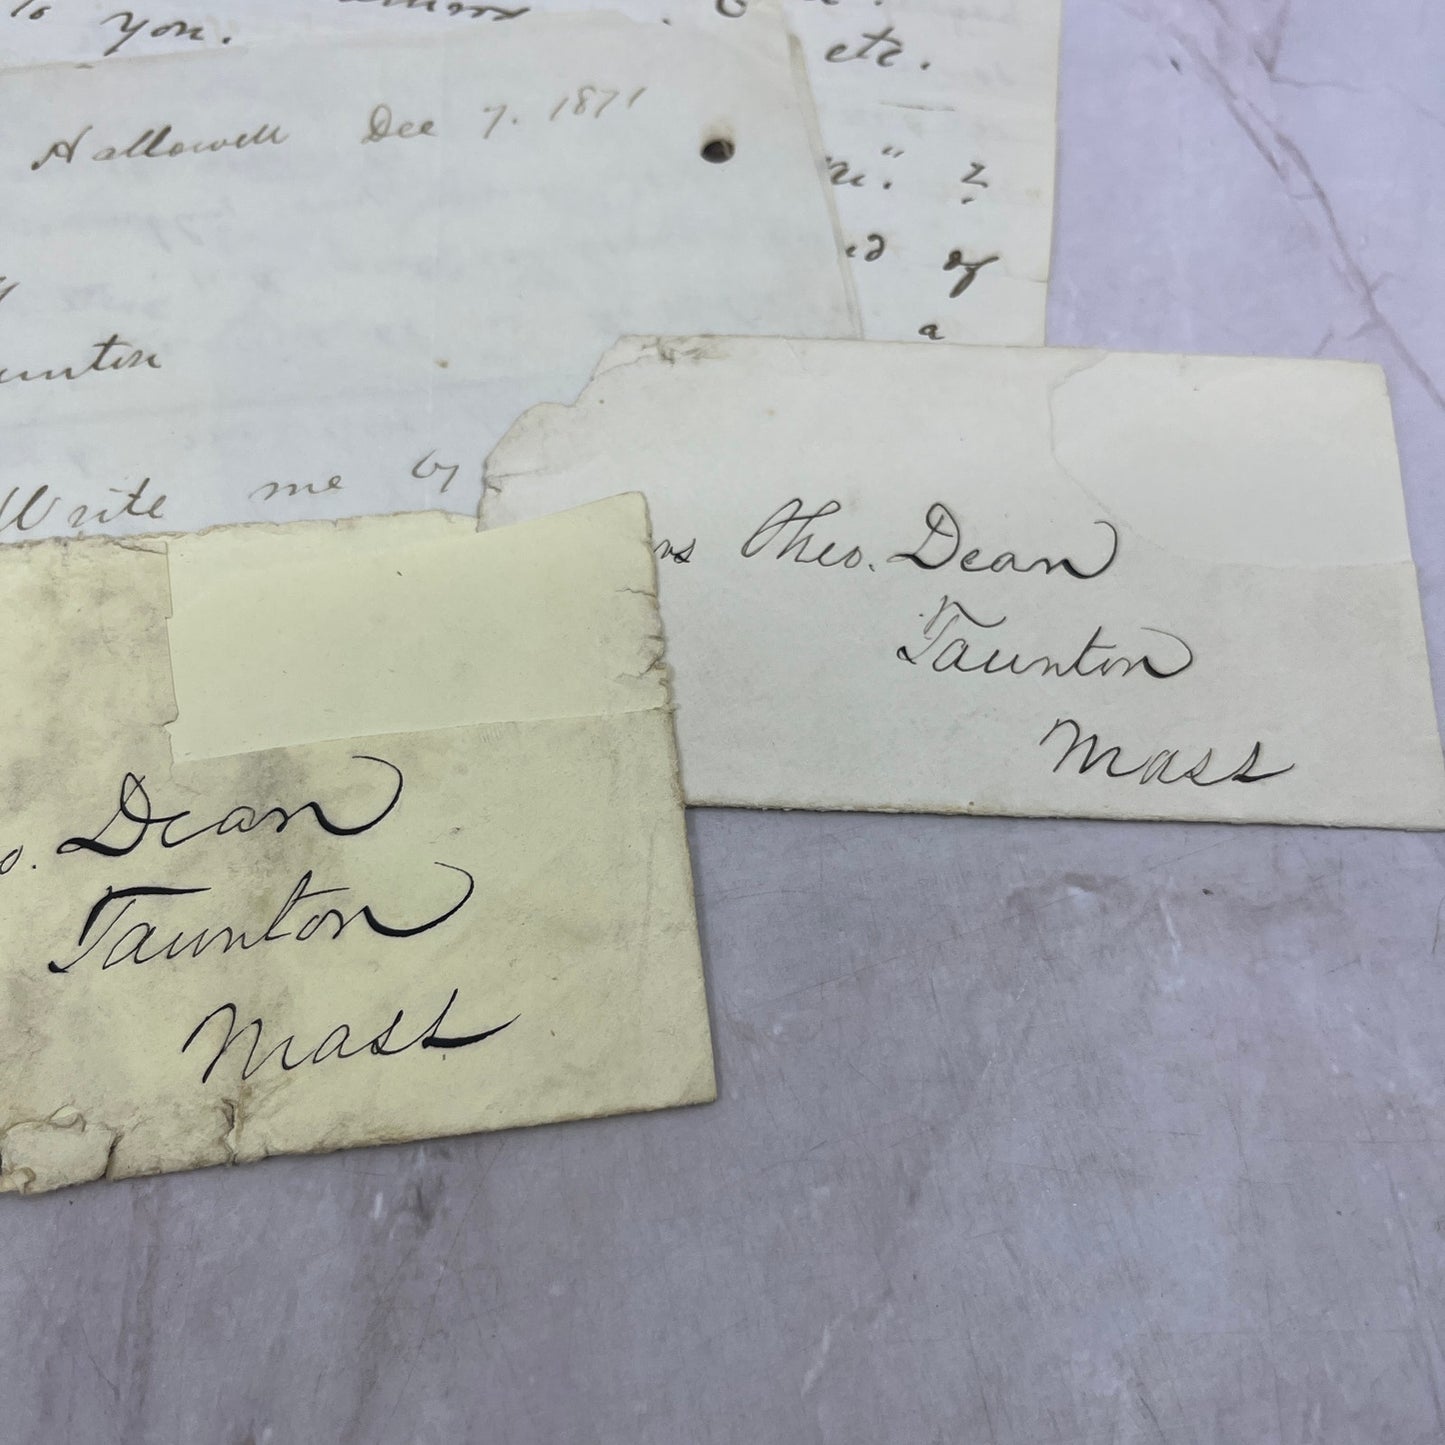 to you.
etc.
Hallowell Dec 7. 1871
of
a
Write me by
Theo. Dean
Taunton
Mass
o. Dean
Taunton
Mass